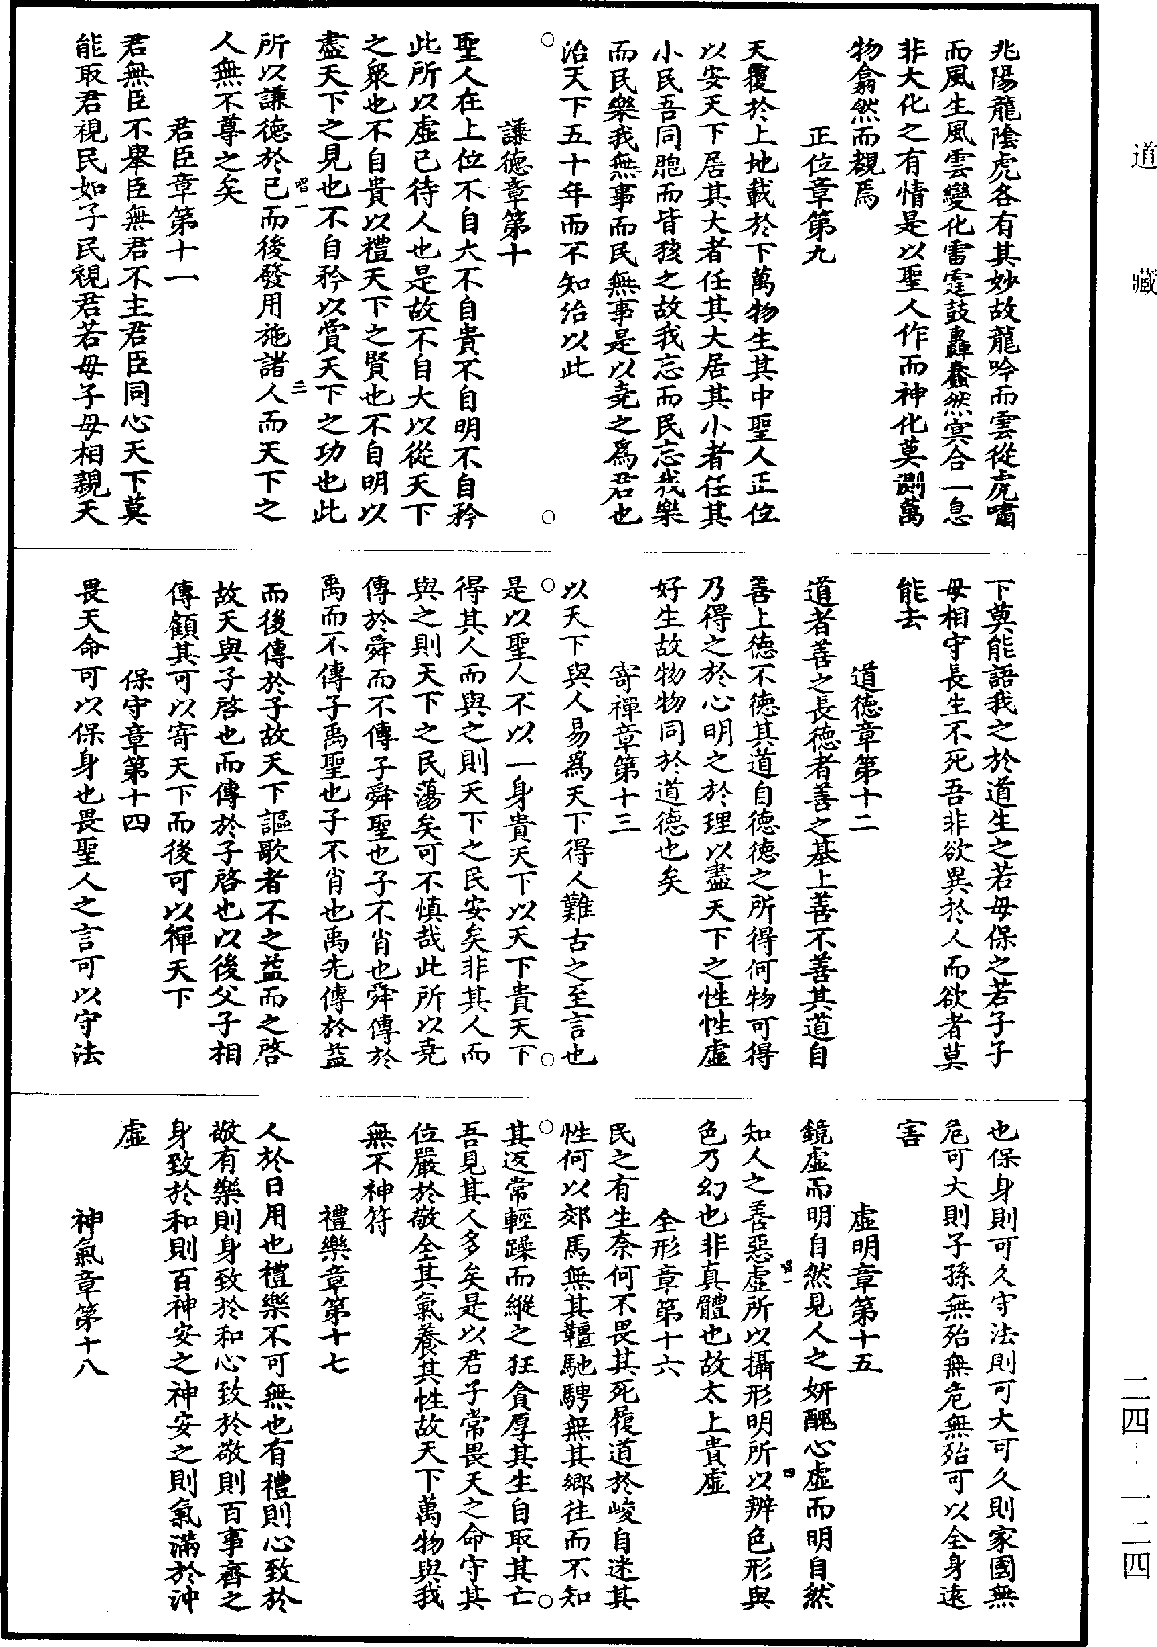 道藏
二四·一二四
兆陽龍陰虎各有其妙故龍吟而雲從虎嘯
而風生風雲變化雷霆鼓轟驀然冥合一息
非大化之有情是以聖人作而神化莫測萬
物翕然而覩焉
正位章第九
天覆於上地載於下萬物生其中聖人正位
以安天下居其大者任其大居其小者任其
小民吾同胞而皆孩之故我忘而民忘我樂
而民樂我無事而民無事是以堯之為君也
治天下五十年而不知治以此
謙德章第十
聖人在上位不自大不自貴不自明不自矜
此所以虛己待人也是故不自大以從天下
之眾也不自貴以禮天下之賢也不自明以
盡天下之見也不自矜以賞天下之功也此
所以謙德於己而後發用施諸人而天下之
人無不尊之矣
君臣章第十一
君無臣不舉臣無君不主君臣同心天下莫
能取君視民如子民視君若母子母相親天
下莫能語我之於道生之若母保之若子子
母相守長生不死吾非欲異於人而欲者莫
能去
道德章第十二
道者善之長德者善之基上善不善其道自
善上德不德其道自德德之所得何物可得
乃得之於心明之於理以盡天下之性性虛
好生故物物同於道德也矣
寄禪章第十三
以天下與人易為天下得人難古之至言也
是以聖人不以一身貴天下以天下貴天下
得其人而與之則天下之民安矣非其人而
與之則天下之民蕩矣可不慎哉此所以堯
傳於舜而不傳子舜聖也子不肖也舜傳於
禹而不傳子禹聖也子不肖也禹先傳於益
而後傳於子故天下謳歌者不之益而之啓
故天與子啓也而傳於子啓也以後父子相
傳顧其可以寄天下而後可以禪天下
保守章第十四
畏天命可以保身也畏聖人之言可以守法
也保身則可久守法則可大可久則家國無
危可大則子孫無殆無危無殆可以全身遠
害
虛明章第十五
鏡虛而明自然見人之妍醜心虛而明自然
知人之善惡虛所以攝形明所以辨色形與
色乃幻也非真體也故太上貴虛
全形章第十六
民之有生奈何不畏其死履道於峻自迷其
性何以郊馬無其韁馳騁無其鄉往而不知
其返常輕躁而縱之狂貪厚其生自取其亡
吾見其人多矣是以君子常畏天之命守其
位嚴於敬全其氣養其性故天下萬物與我
無不神符
禮樂章第十七
人於日用也禮樂不可無也有禮則心致於
敬有樂則身致於和心致於敬則百事齊之
身致於和則百神安之神安之則氣滿於沖
虛
神氣章第十八